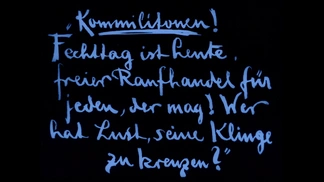 „Kommilitonen!
Fechttag ist heute,
freier Raufhandel für
jeden, der mag! Wer
hat Lust, seine Klinge
zu kreuzen?"